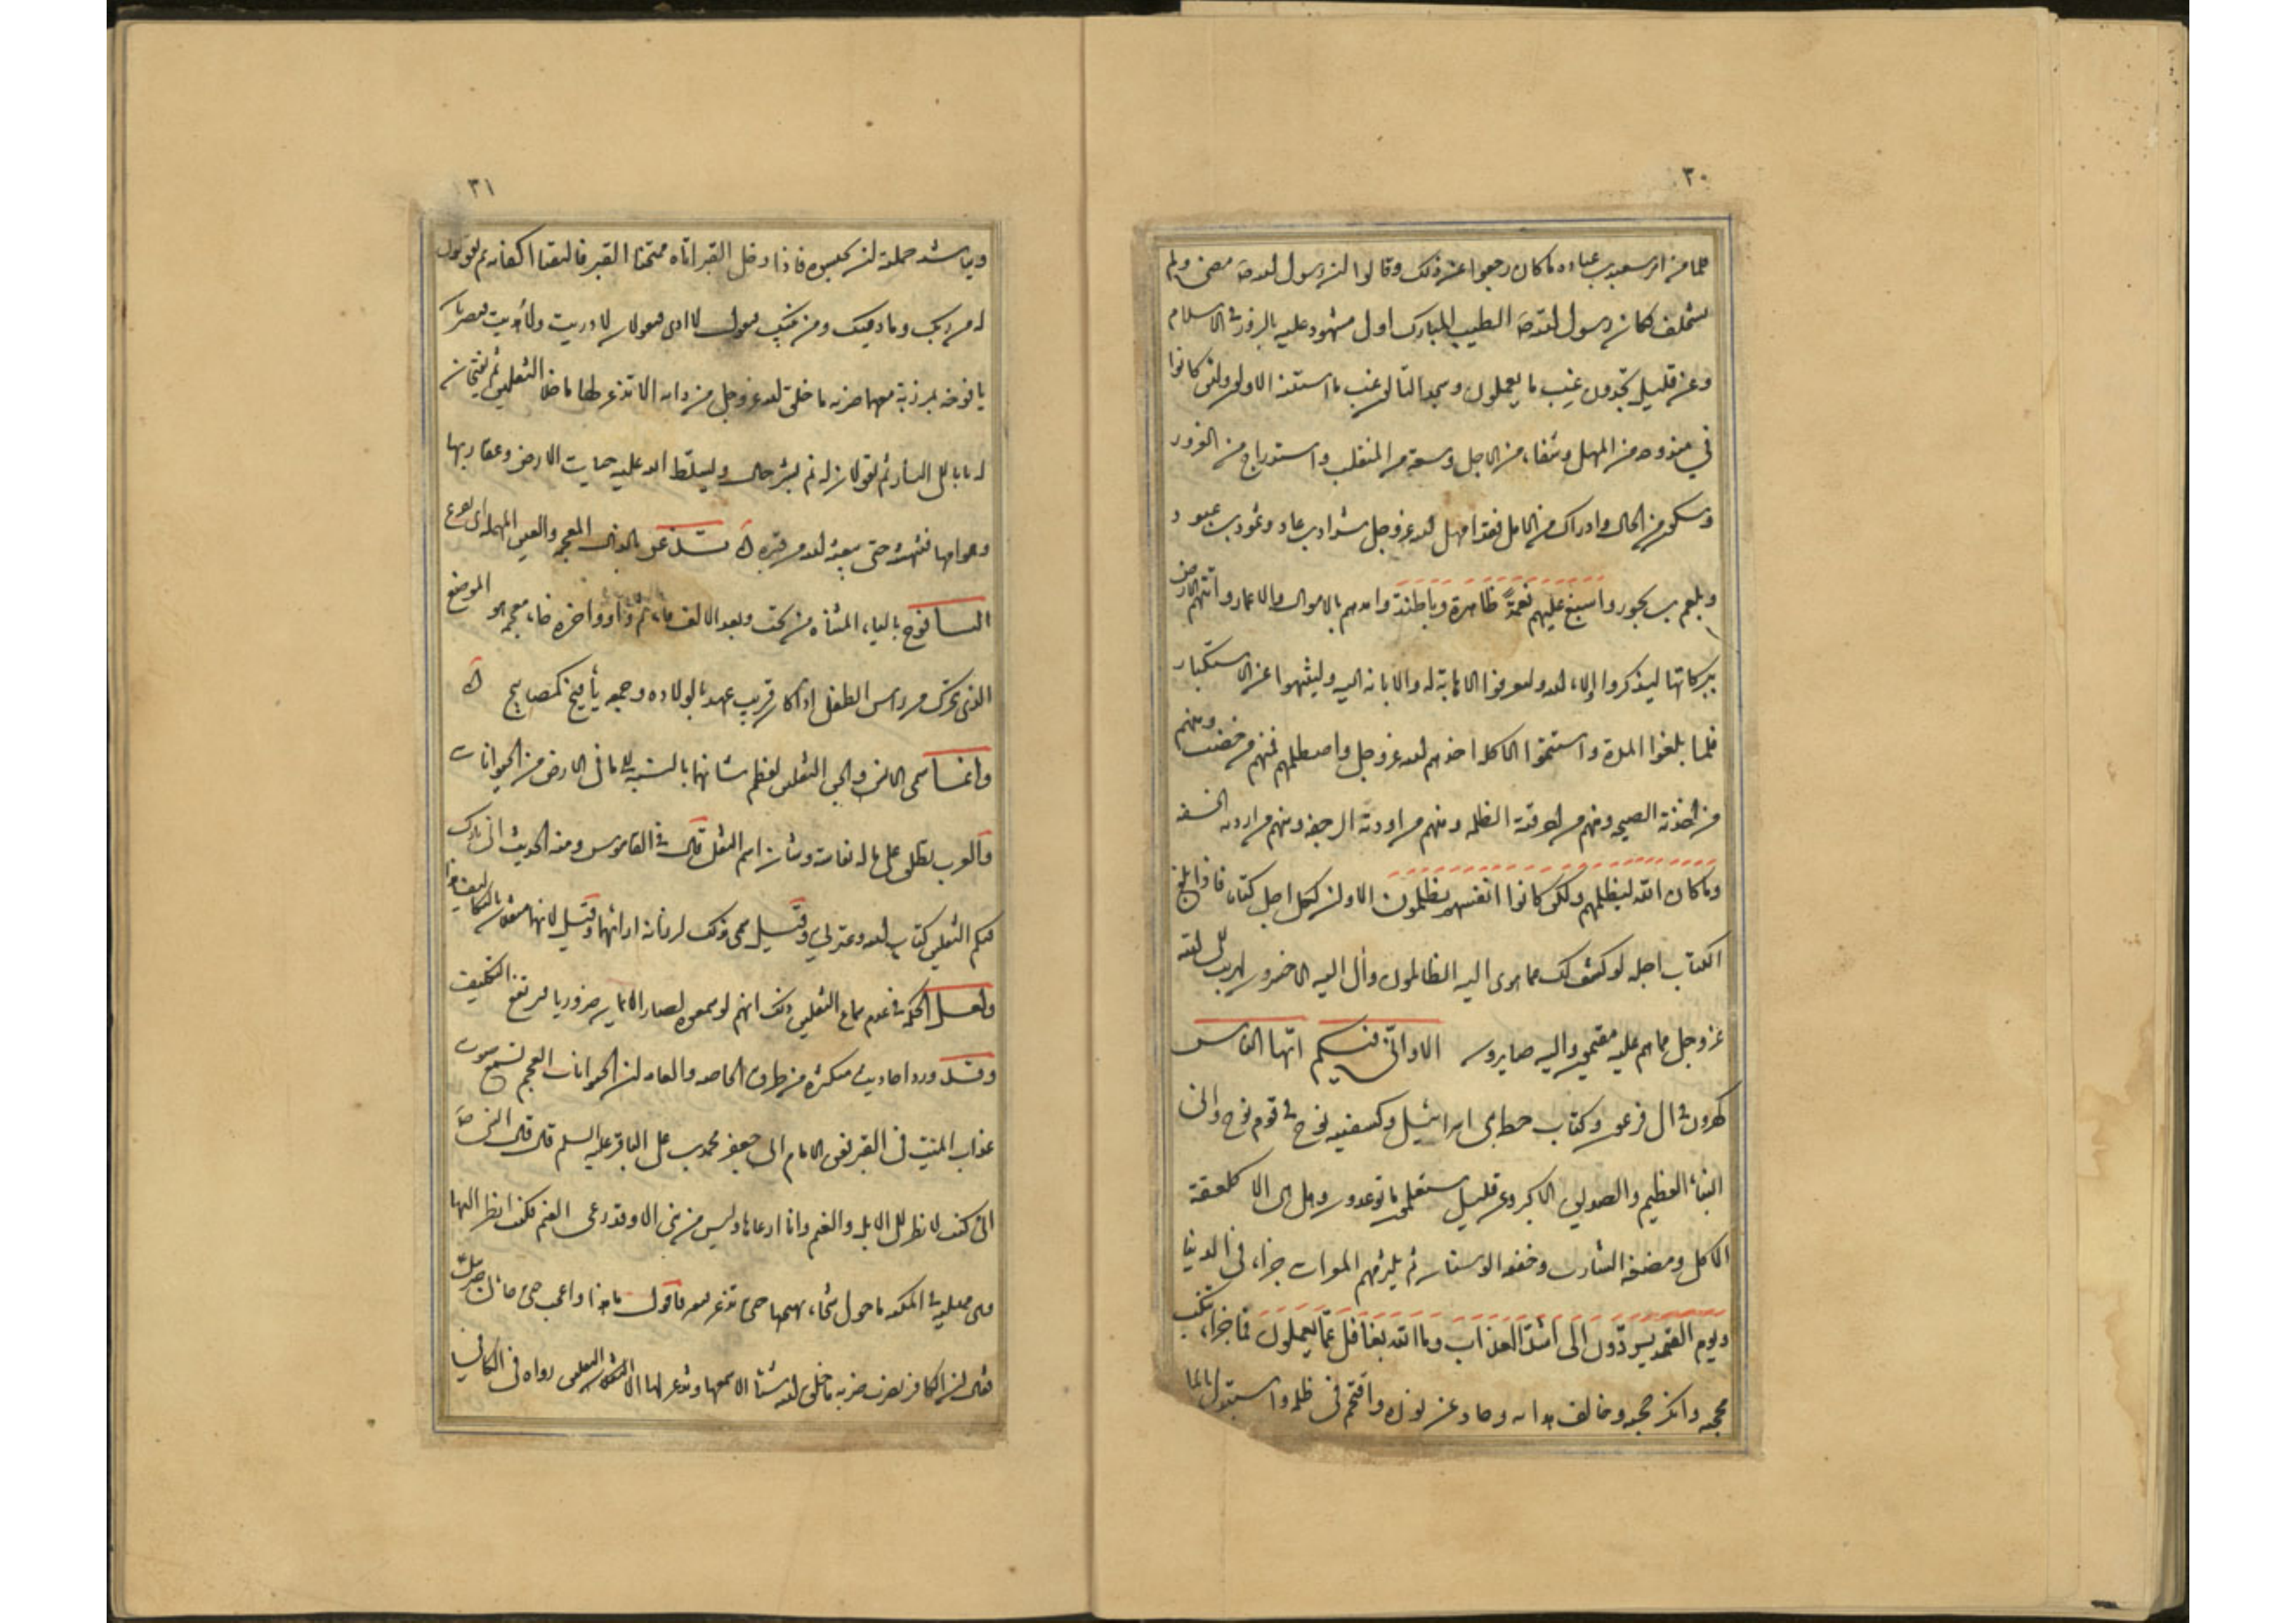 ٣٠
فلما من امر سعد بن عباده ما كان رجعوا عن ذلك وقالوا ان رسول الله ص مضى ولم
يستخلف فكان رسول الله ص الطيب المبارك اول مشهود عليه بالزور فى الاسلام
وعن قليل تجدون غب ما يعملون وسيجد التالون غب ما اسسه الاولون ولئن كانوا
في مندوحة من المهل وشفاء من الاجل وسعة من المنقلب واستدراج من الغرور
وسكون من الحال وادراك من الامل فقد امهل الله عز وجل شداد بن عاد وثمود بن عبود
وبلعم بن بحور واسبغ عليهم نعمه ظاهرة وباطنة وامدهم بالاموال والاعمار واتتهم الارض
ببركاتها ليذكروا الاء الله وليعرفوا الاهابة له والانابة اليه ولينتهوا عن الاستكبار
فلما بلغوا المدة واستتموا الاكلة اخذهم الله عز وجل واصطلمهم فمنهم من حصب ومنهم
من اخذته الصيحه ومنهم من احرقته الظلة ومنهم من اودته الرجفه ومنهم من اردته الخسفه
وما كان الله ليظلمهم ولكن كانوا انفسهم يظلمون الا وان لكل اجل كتاب فاذا بلغ
الكتاب اجله لو كشف لك عما هوى اليه الظالمون وآل اليه الاخسرون لهربت الى الله
عز وجل مما هم عليه مقيمون واليه صايرون الا وانى فيكم ايها الناس
كهرون فى ال فرعون وكباب حطة فى بنى اسرائيل وكسفينه نوح فى قوم نوح وانى
النباء العظيم والصديق الاكبر وعن قليل ستعلمون ما توعدون وهل هى الا كلعقة
الاكل ومضغة الشارب وخفقة الوسنان ثم يلزمهم المعرات جزاء فى الدنيا
ويوم القيمة يردون الى اشد العذاب وما الله بغافل عما يعملون فما جزاء من تنكب
محجته وانكر حججه وخالف هداته وحاد عن نوره واقتحم فى ظلمه واستبدل بالماء
٣١
ويناشد حملته ان يحبسوه فاذا دخل القبر اتاه ممتحنا القبر فالقيا اكفانه ثم يقولان
له من ربك وما دينك ومن نبيك فيقول لا ادرى فيقولان لا دريت ولا هديت فيضربان
يافوخه بمرزبة معهما ضربة ما خلق الله عز وجل من دابه الا تذعر لها ما خلا الثقلين ثم يفتحان
له بابا الى النار ثم يقولان له نم بشر حال ويسلط الله عليه حيات الارض وعقاربها
وهوامها فتنهشه حتى يبعثه الله من قبره تذعر بالذال المعجمه والعين المهمله اى يفزع
اليافوخ بالياء المثناه من تحت وبعد الالف فاء ثم واو واخره خاء معجمه هو الموضع
الذى يتحرك من راس الطفل اذا كان قريب عهد بالولاده وجمعه يأفيخ كمصابيح
وانما سمى الانس والجن الثقلين لعظم شانهما بالنسبه الى ما فى الارض من الحيوانات
والعرب يطلق على ما له نفاسة وشان اسم الثقل قال فى القاموس ومنه الحديث انى تارك
فيكم الثقلين كتاب الله وعترتى وقيل سمى بذلك لرزانة ارائهما وقيل لانهما مثقلان بالتكاليف
ولعل الحكمه فى عدم سماع الثقلين ذلك انهم لو سمعوه لصار الايمان ضروريا فيرتفع التكليف
وقد ورد احاديث متكثره من طرق الخاصه والعامه ان الحيوانات العجم تسمع صوت
عذاب الميت فى القبر فعن الامام ابى جعفر محمد بن على الباقر عليه السلم قال قال النبى ص
انى كنت لانظر الى الابل والغنم وانا ارعاها وليس من نبى الا وقد رعى الغنم فكنت انظر اليها
وهى ممتليه فى المكنه ما حولها شئ يهيجها حتى تذعر فاقول ما هذا واعجب حتى حدثنى جبرئيل
فقال ان الكافر يضرب ضربه ما خلق الله شيئا الا سمعها ويذعر لها الا الثقلين رواه فى الكافى